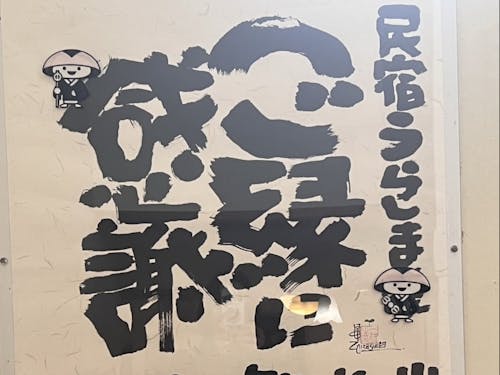 民宿うらしま
ご縁に
感謝